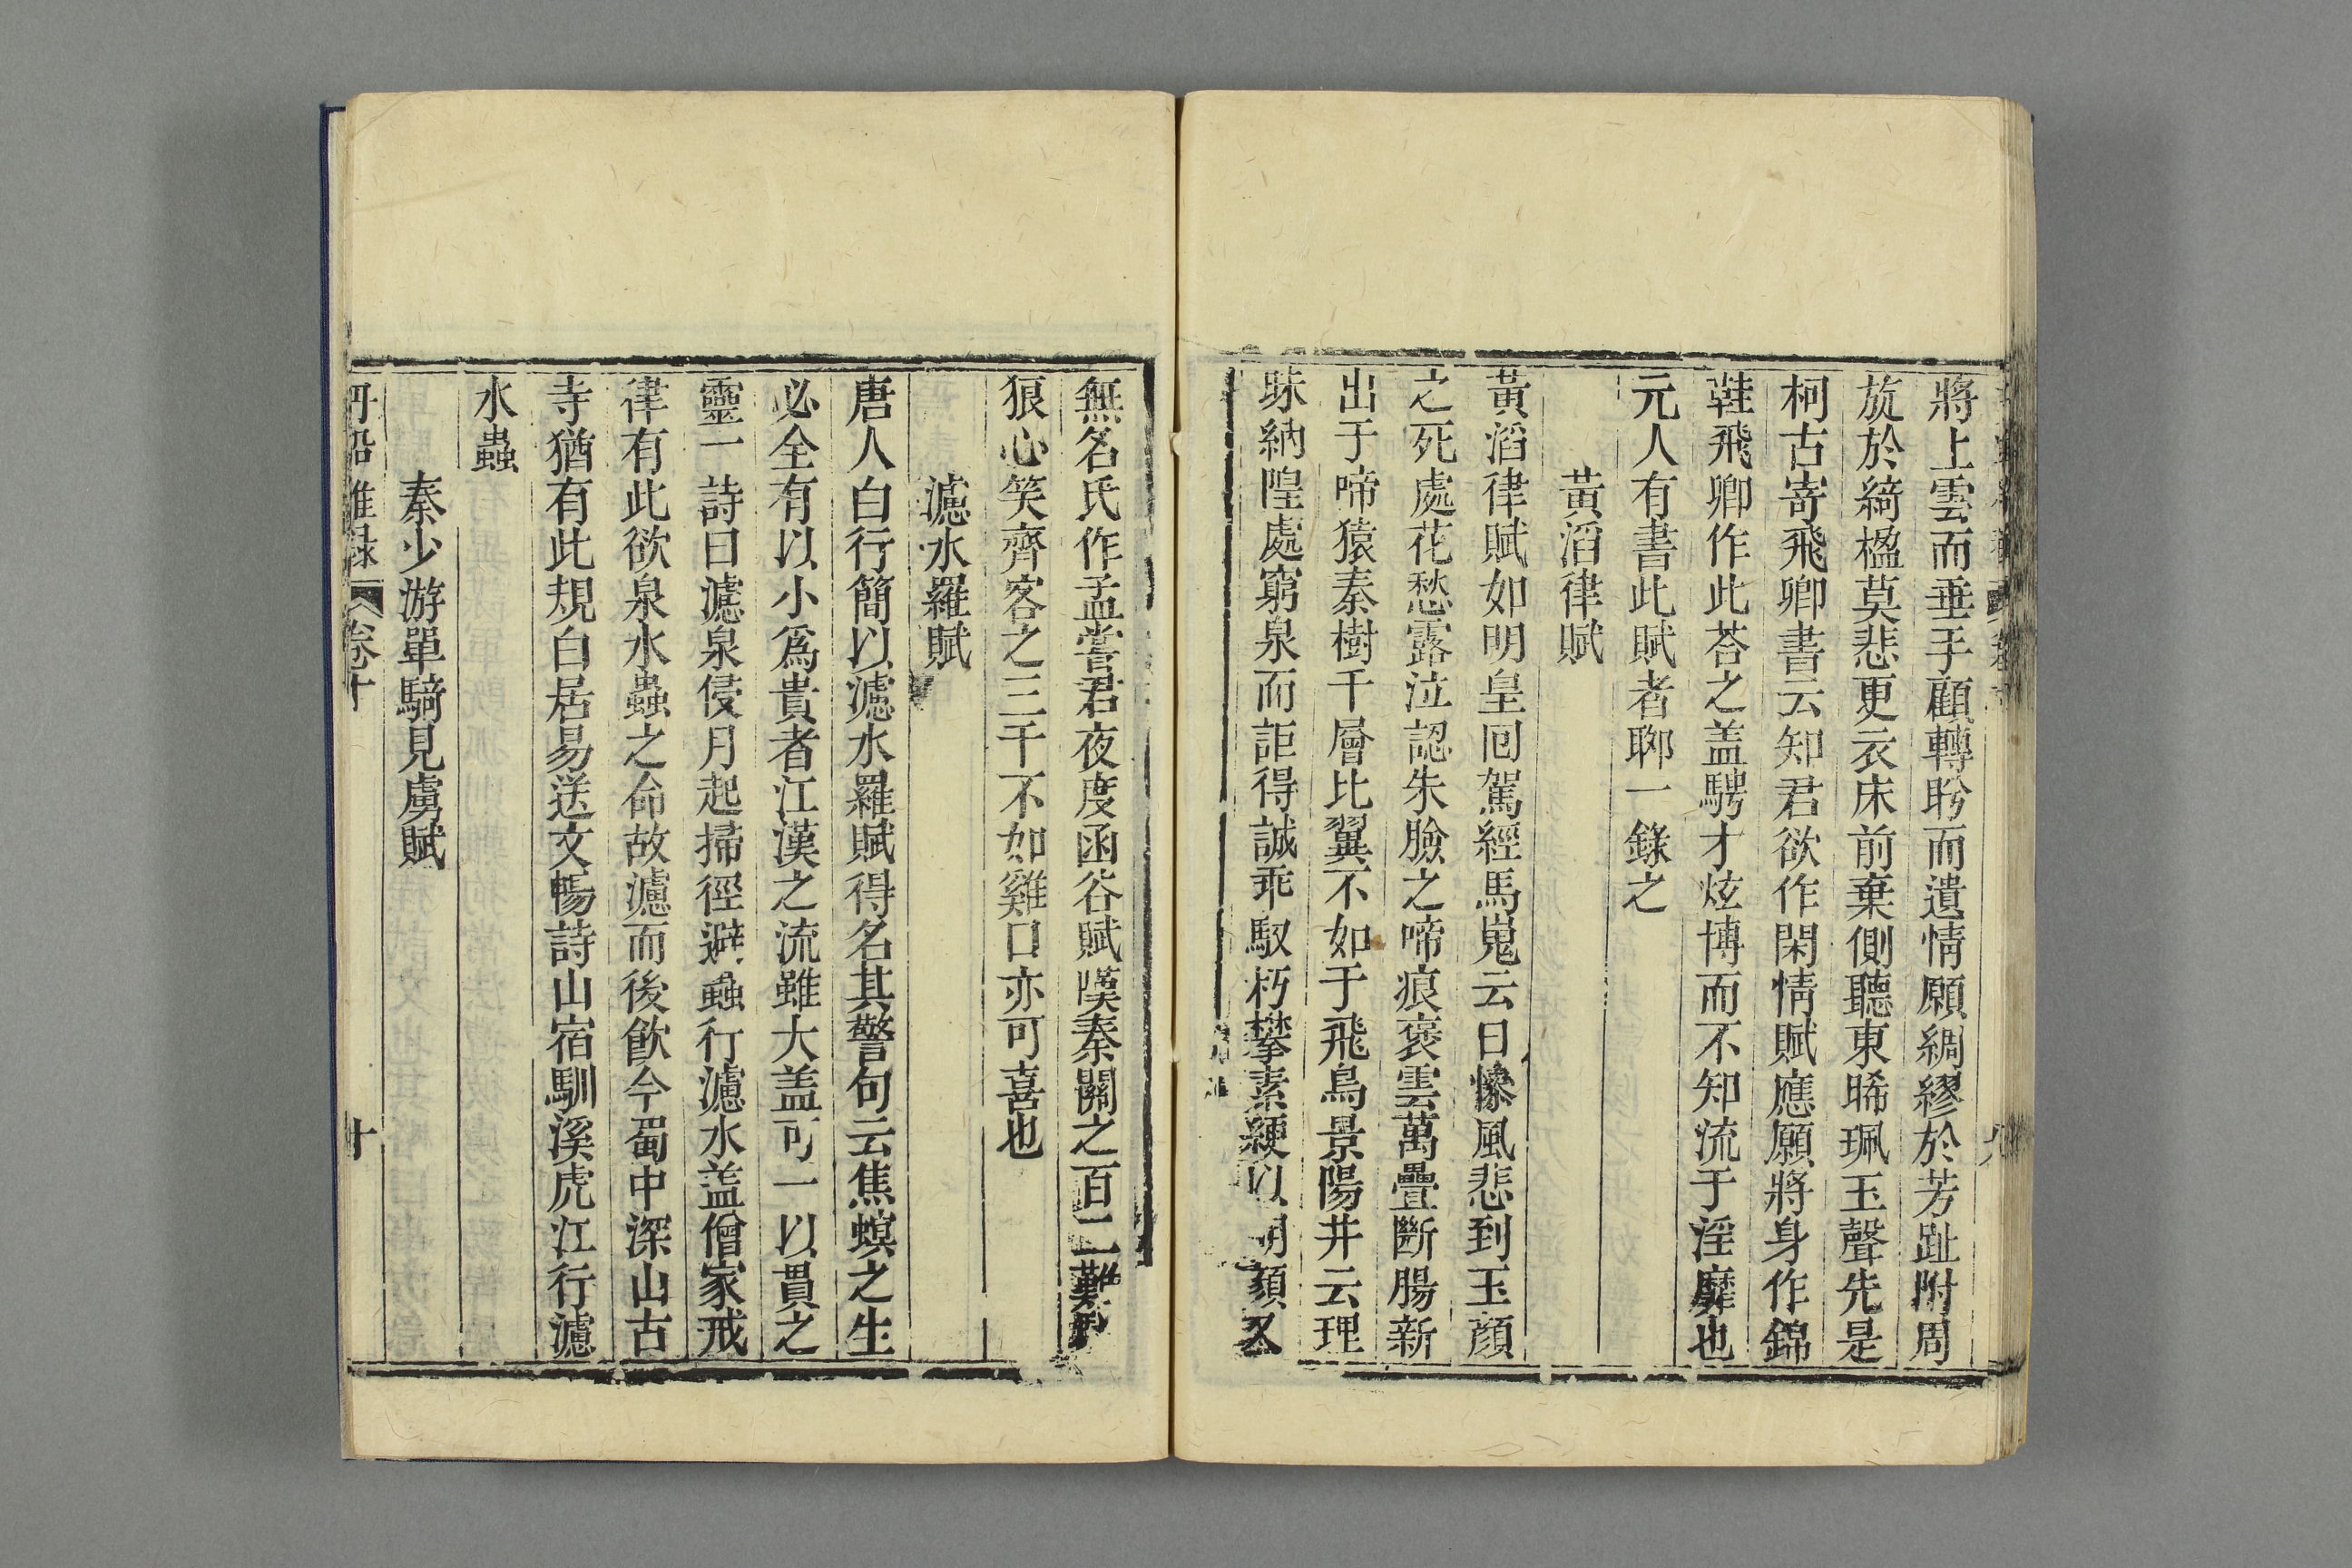 將上雲而垂手顧轉盻而遺情願綢繆於芳趾附周
旋於綺楹莫悲更衣床前棄側聽東晞珮玉聲先是
柯古寄飛卿書云知君欲作閑情賦應願將身作錦
鞋飛卿作此荅之盖騁才炫博而不知流于淫靡也
元人有書此賦者聊一錄之
黃滔律賦
黃滔律賦如明皇囘駕經馬嵬云日慘風悲到玉顏
之死處花愁露泣認朱臉之啼痕褒雲萬疊斷腸新
出于啼猿秦樹千層比翼不如于飛鳥景陽井云理
昧納隍處窮泉而詎得誠乖馭朽攀素綆以 又
無名氏作孟嘗君夜度函谷賦嘆秦關之百二難
狼心笑齊客之三千不如雞口亦可喜也
濾水羅賦
唐人白行簡以濾水羅賦得名其警句云焦螟之生
必全有以小爲貴者江漢之流雖大盖可一以貫之
靈一詩曰濾泉侵月起掃徑避蟲行濾水盖僧家戒
律有此欲泉水蟲之命故濾而後飲今蜀中深山古
寺猶有此規白居易送文暢詩山宿馴溪虎江行濾
水蟲
秦少游單騎見虜賦
卷十
十